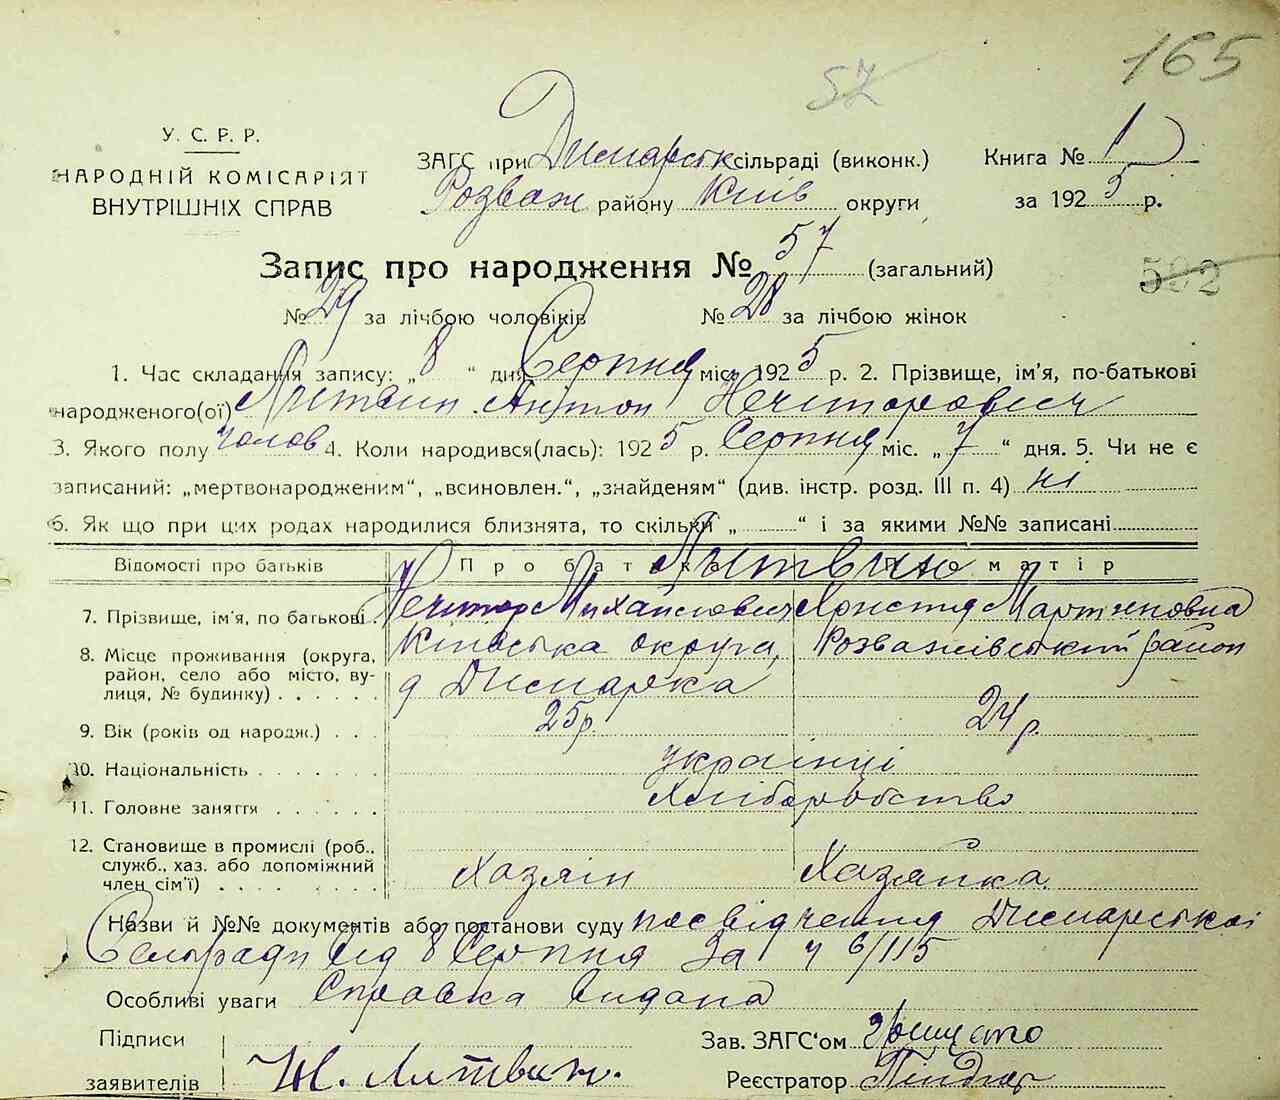 165
57
У. С. Р. Р.
НАРОДНІЙ КОМІСАРІЯТ
ВНУТРІШНІХ СПРАВ
ЗАГС при Димарськ сільраді (виконк.)
Розваж району Київ округи
Книга № 1
за 1925 р.
Запис про народження № 57 (загальний)
502
№ 29 за лічбою чоловіків № 28 за лічбою жінок
1. Час складання запису: „8“ дня Серпня міс. 1925 р. 2. Прізвище, ім'я, по-батькові
народженого(ої) Литвин Антон Нечипорович
3. Якого полу чолов 4. Коли народився(лась): 1925 р. Серпня міс. „7“ дня. 5. Чи не є
записаний: „мертвонародженим“, „всиновлен.“, „знайденям“ (див. інстр. розд. III п. 4) ні
6. Як що при цих родах народилися близнята, то скільки „ “ і за якими №№ записані
Відомості про батьків Про батька Про матір
Литвин
7. Прізвище, ім'я, по батькові Нечипор Михайлович Христя Мартиновна
8. Місце проживання (округа, район, село або місто, вулиця, № будинку) Київська округа, Розважівський район
д Димарка
9. Вік (років од народж.) 25 р. 24 р.
10. Національність українці
11. Головне заняття Хліборобство
12. Становище в промислі (роб., служб., хаз. або допоміжний член сім'ї) Хазяін Хазяйка
Назви й №№ документів або постанови суду посвідчення Димарської
Сельради від 8 Серпня За ч 6/115
Особливі уваги Справка видана
Підписи
заявителів Н. Литвин.
Зав. ЗАГС'ом
Реєстратор